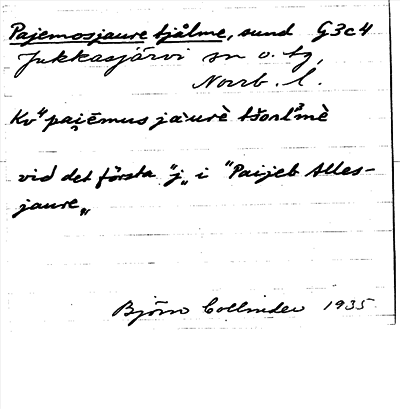 Pajemosjaure tjålme, sund G3c4
Jukkasjärvi sn o. tg,
Norrb. l.
Kv" pai̯ēmus jàurè tšoɑlᵊmè
vid det första "j" i "Paijeb Alles-
jaure"
Björn Collinder 1935